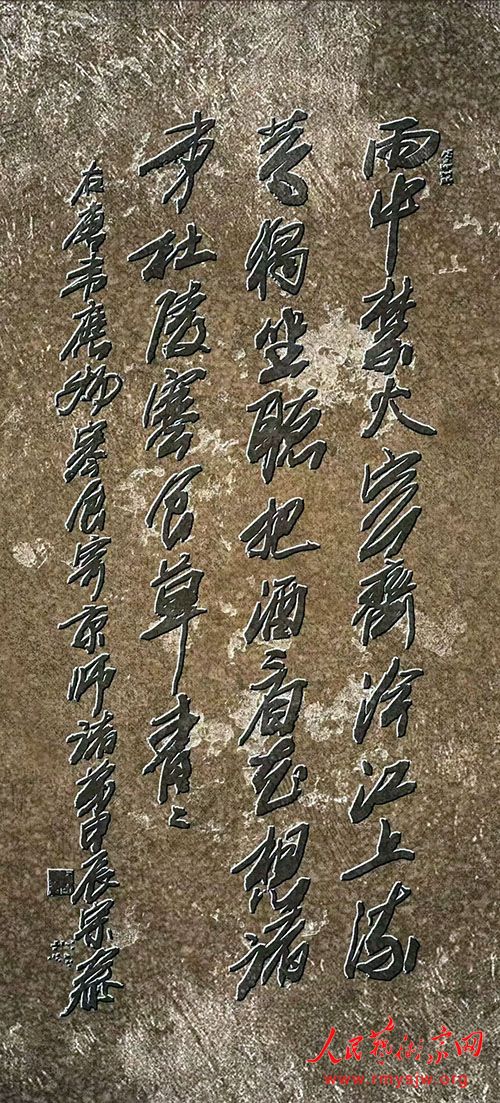 雨中禁火空齋冷江上流
莺獨坐聽把酒看花想諸
弟杜陵寒食草青々
右唐韦應物寒食寄京师諸弟甲辰
人民藝術家网
www.rmyajw.org